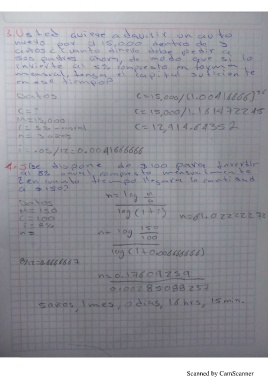 3. Usted quiere adquirir un auto
nuevo por $ 15,000 dentros de 3
años ¿Cuánto dinero debe pedir a
sus padres ahora, de modo que si lo
invierte al 5% compuesto en forma
mensual, tenga el capital suficiente
en el tiempo?
Datos
C= 15,000/(1.00416666)
C= ?
C= 15,000/1.161472245
M= 15,000
C= 12,914.64352
.05/12= 0.0041666666
4. Jose dispone de $100 para invertir
al 8% anual, compuesto mensualmente
¿en cuánto tiempo llegará la cantidad
a $150?
Datos
n= log M/C
M= 150
log(1+i)
C= 100
i= 8%
n= log 150/100
n=
log(1+0.006666666)
n= 0.17609259
0.00285098257
5 años, 1 mes, 0 días, 16 hrs, 15 min.
Scanned by CamScanner